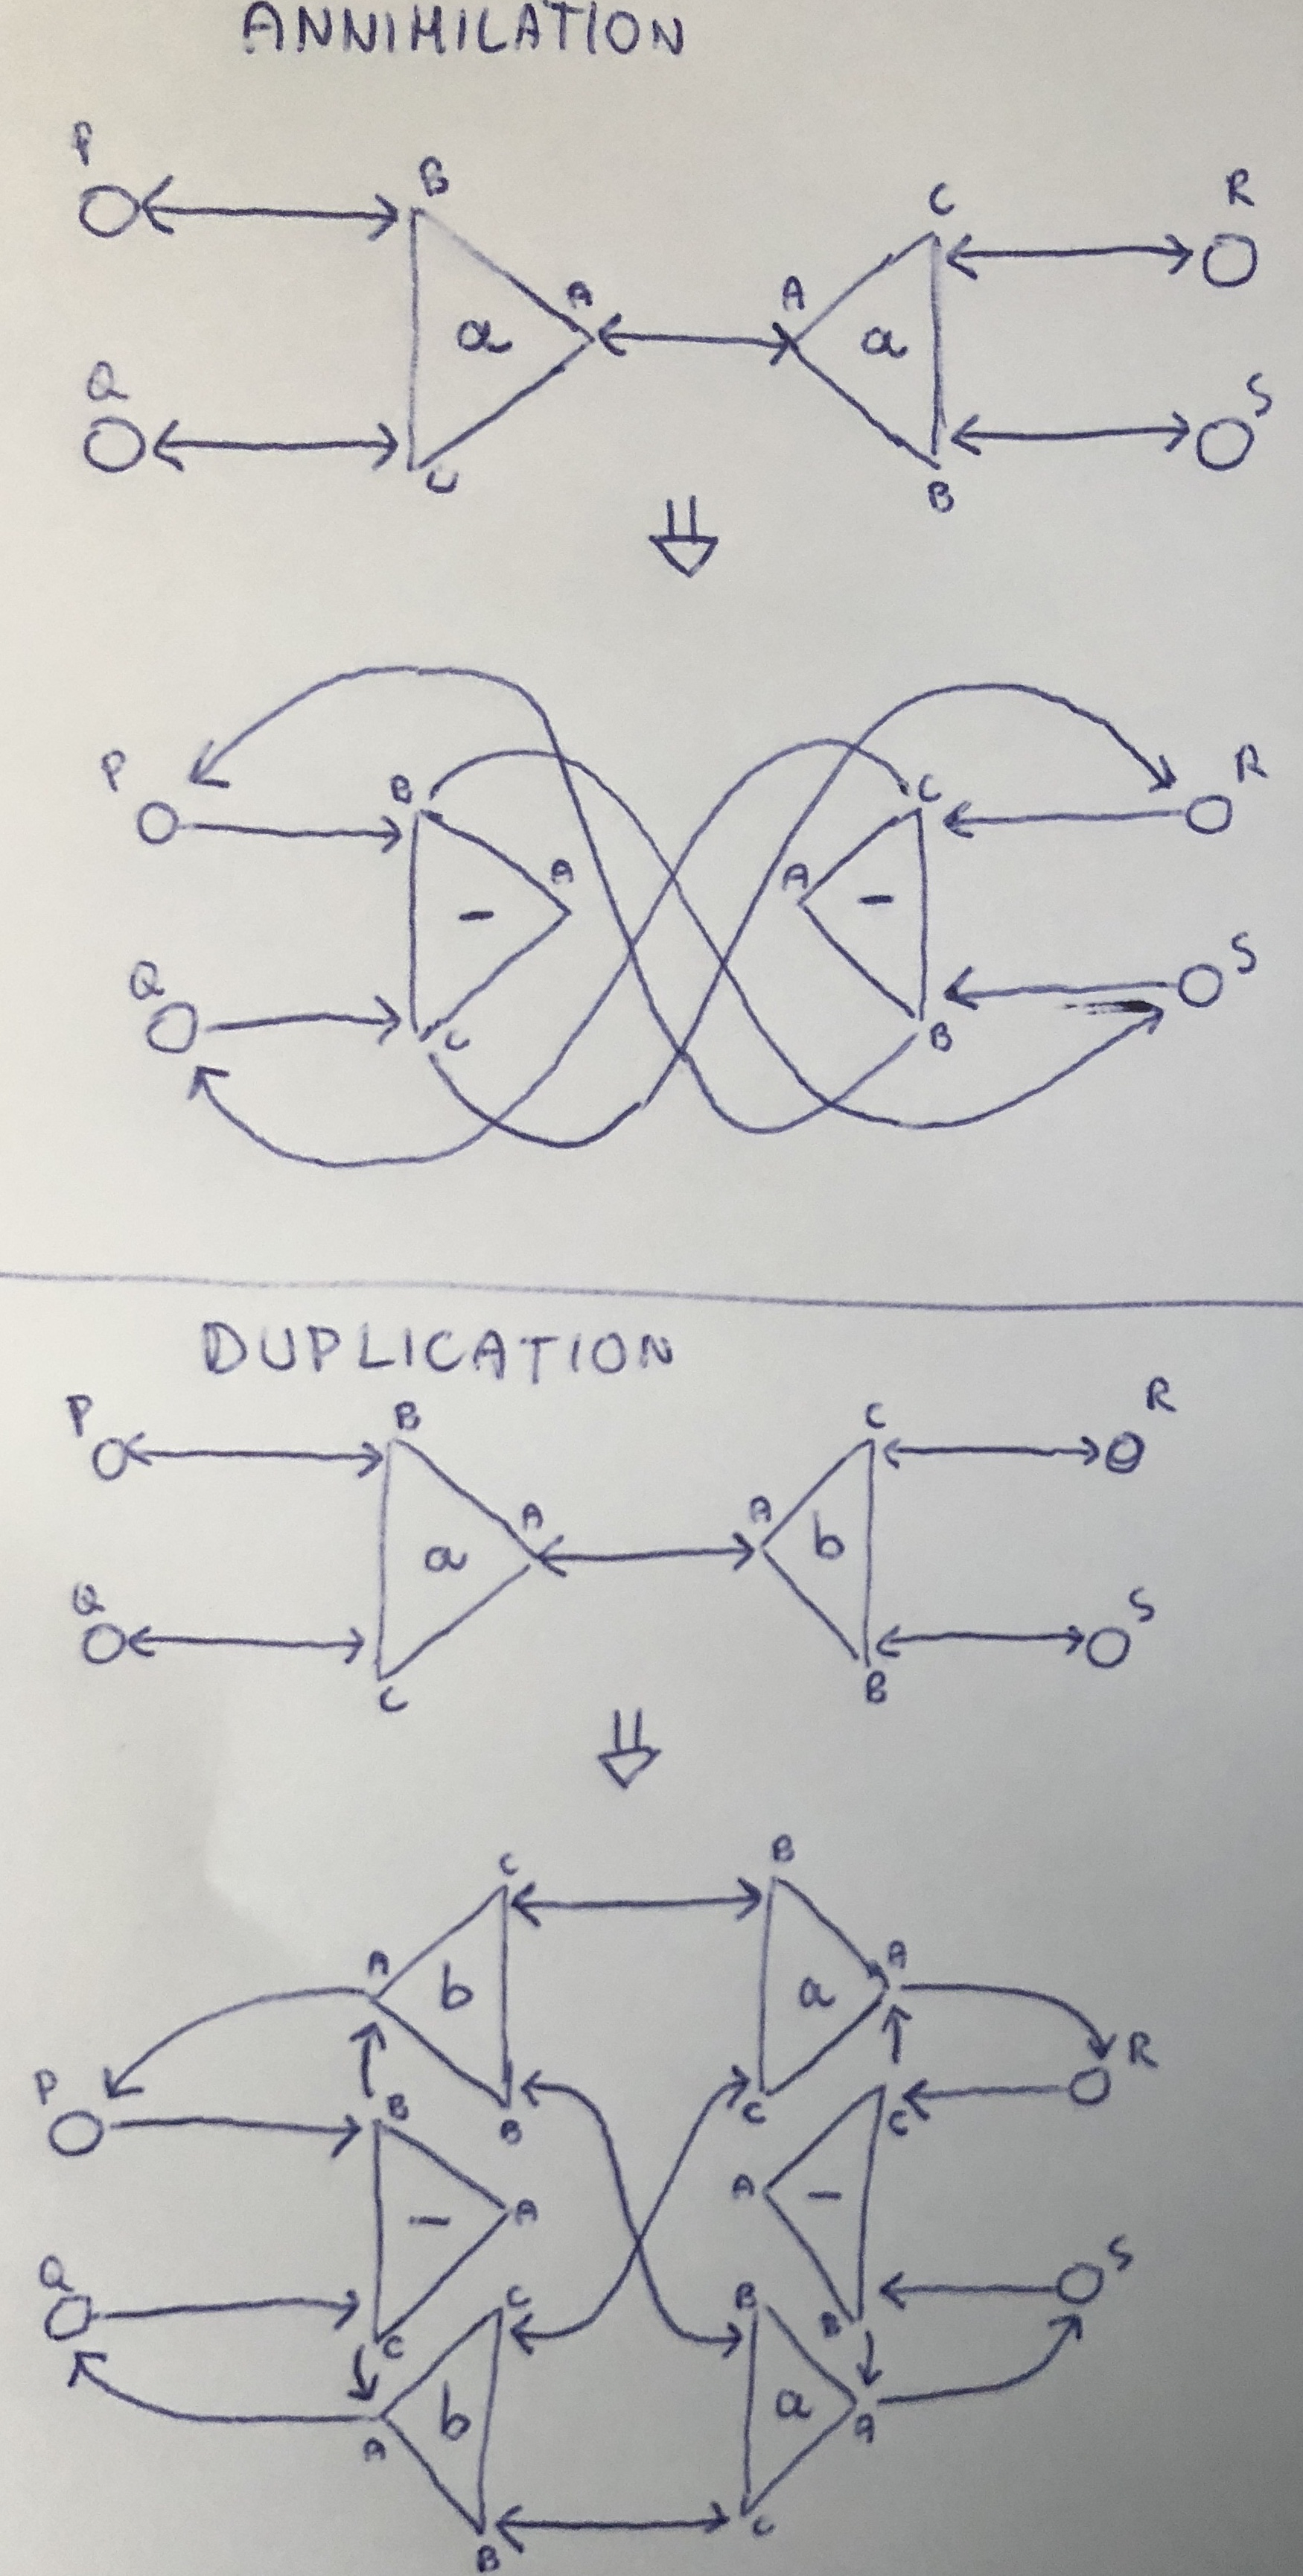 ANNIHILATION
P B C R
A A
a a
Q S
C B
P B C R
A A
- -
Q S
C B
DUPLICATION
P B C R
A A
a b
Q S
C B
C B
A A
b a
P R
B B C C
A A
- -
Q S
C C B B
b a
A A
B C